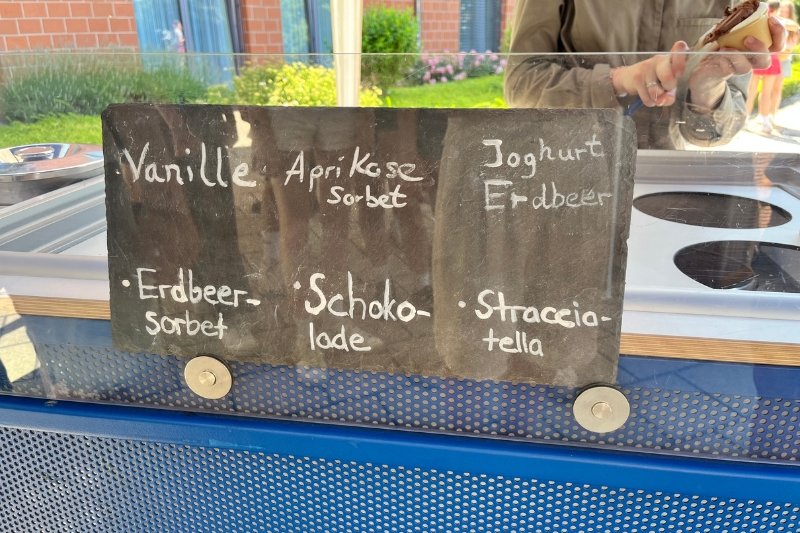 · Vanille
Aprikose
Sorbet
Joghurt
Erdbeer
· Erdbeer-
sorbet
· Schoko-
lade
· Straccia-
tella